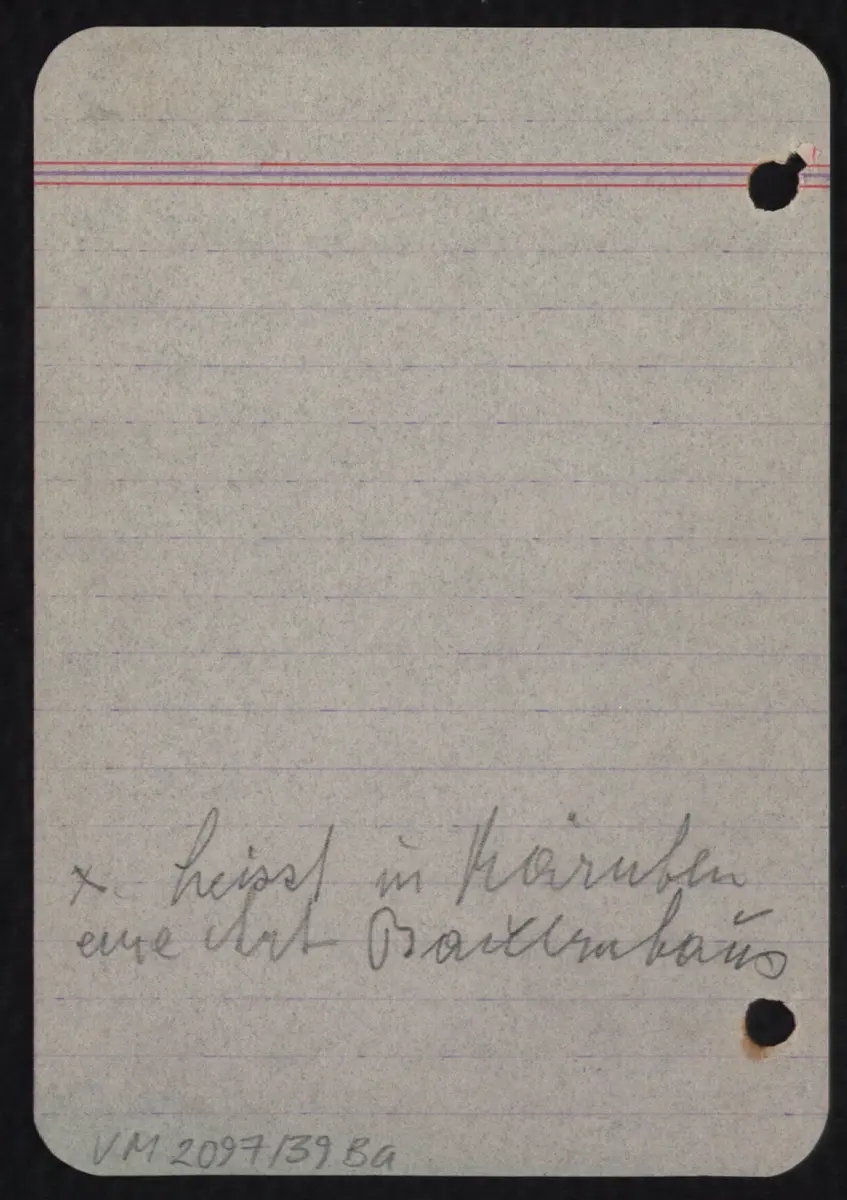 x. heisst in Kärnten
eine Art Bauernhaus
VM 2097/39 Ba